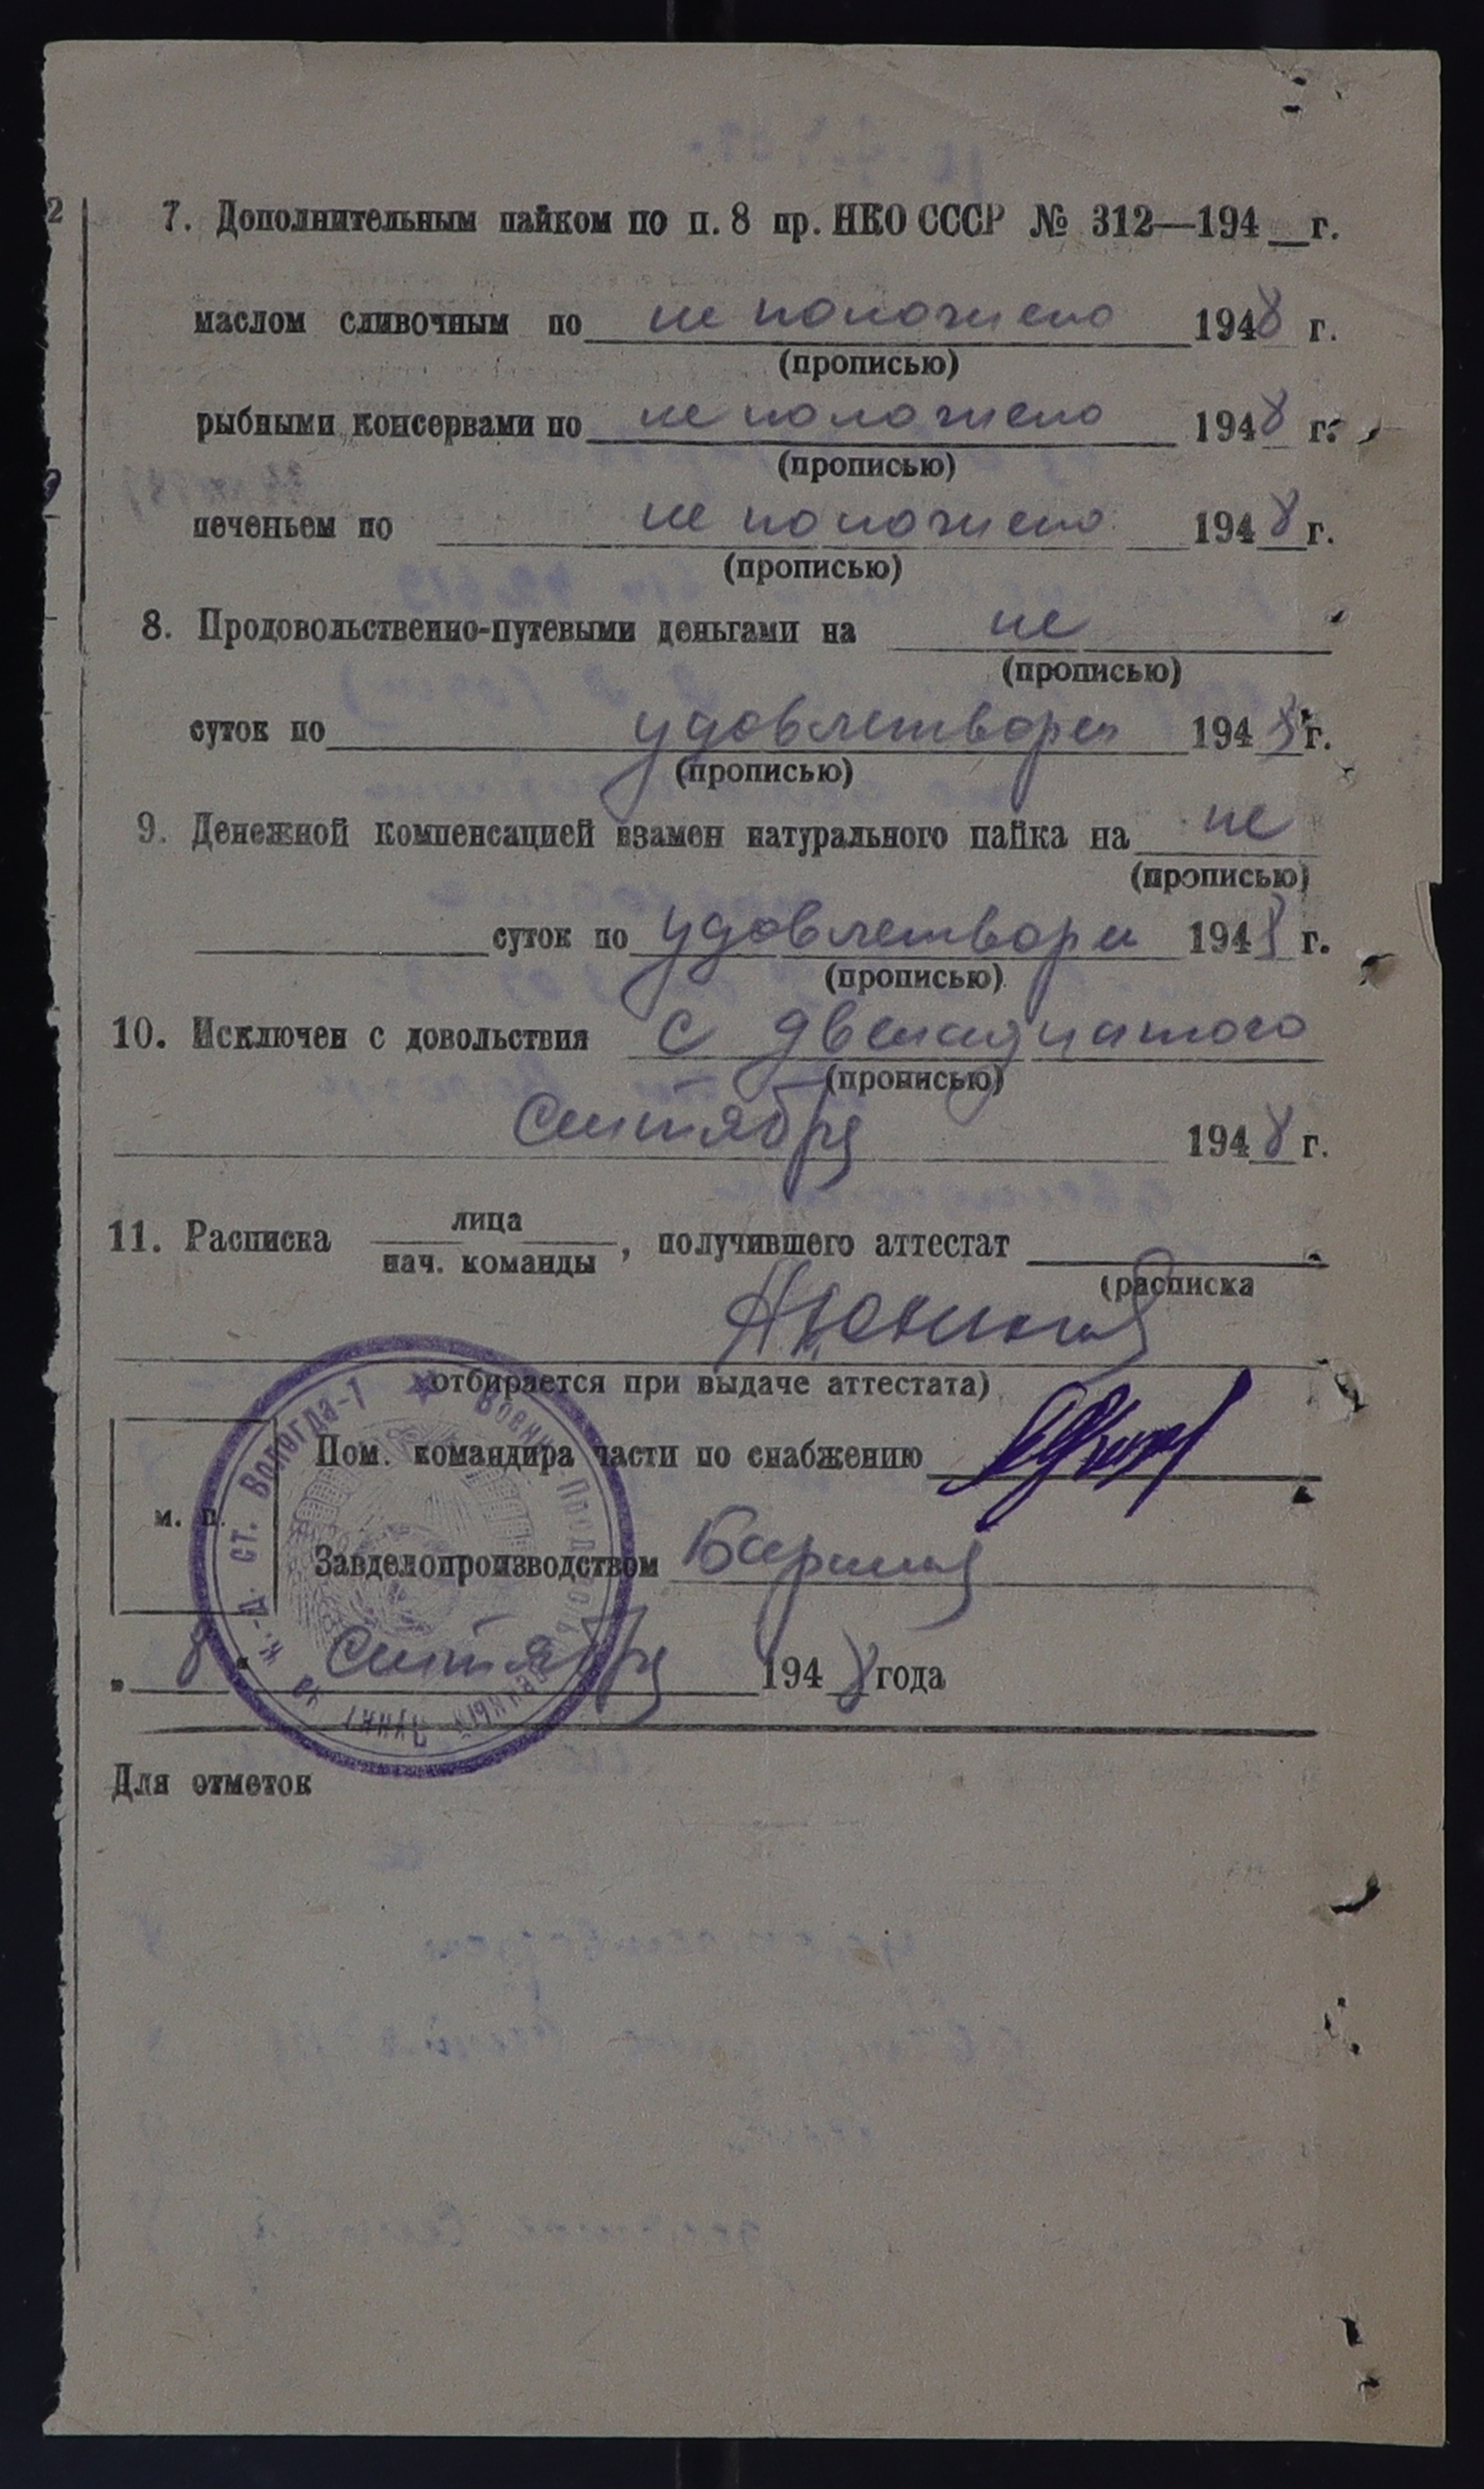 2
7. Дополнительным пайком по п. 8 пр. НКО СССР № 312—194__г.
маслом сливочным по не положено 1948 г.
(прописью)
рыбными консервами по не положено 1948 г.
(прописью)
печеньем по не положено 1948 г.
(прописью)
8. Продовольственно-путевыми деньгами на не
(прописью)
суток по удовлетворен 1948 г.
(прописью)
9. Денежной компенсацией взамен натурального пайка на не
(прописью)
суток по удовлетворен 1948 г.
(прописью)
10. Исключен с довольствия с двенадцатого
(прописью)
Сентября 1948 г.
11. Расписка лица
нач. команды, получившего аттестат
(расписка
отбирается при выдаче аттестата)
Пом. командира части по снабжению
м. п.
Завделопроизводством
„8“ Сентября 1948 года
Военно-Продовольственный Пункт на ж.-д. ст. Вологда-1
Для отметок